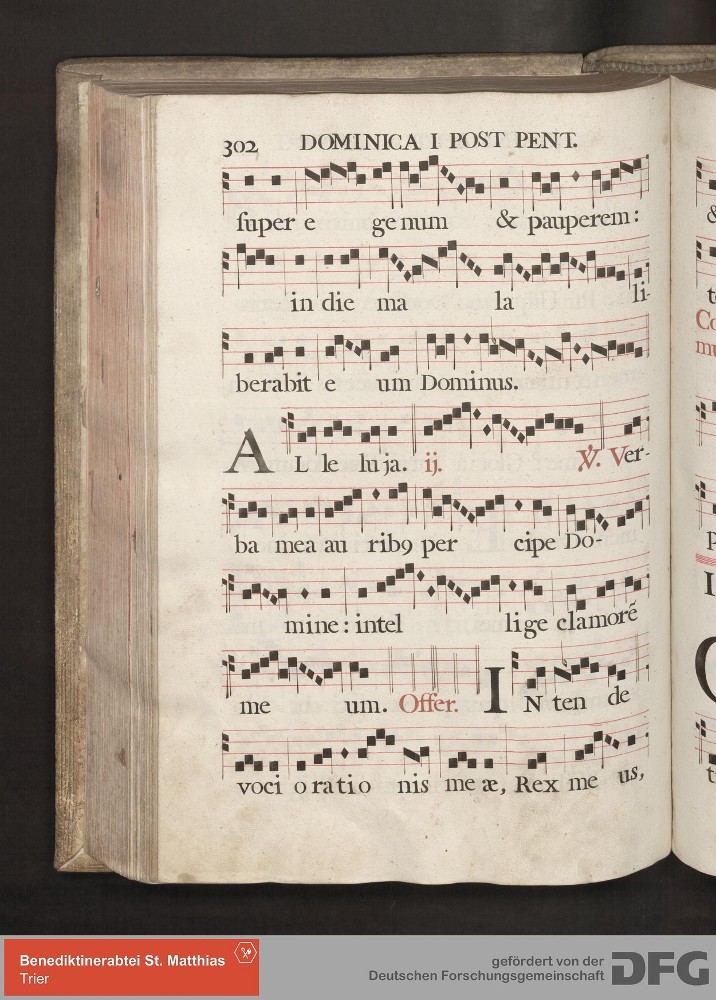 302 DOMINICA I POST PENT.
super e genum & pauperem:
in die ma la li-
berabit e um Dominus.
A L le lu ja. ij. ℣. Ver-
ba mea au ribꝰ per cipe Do-
mine: intel lige clamorẽ
me um. Offer. IN ten de
voci o ratio nis me æ, Rex me us,
Benediktinerabtei St. Matthias
Trier
gefördert von der
Deutschen Forschungsgemeinschaft
DFG